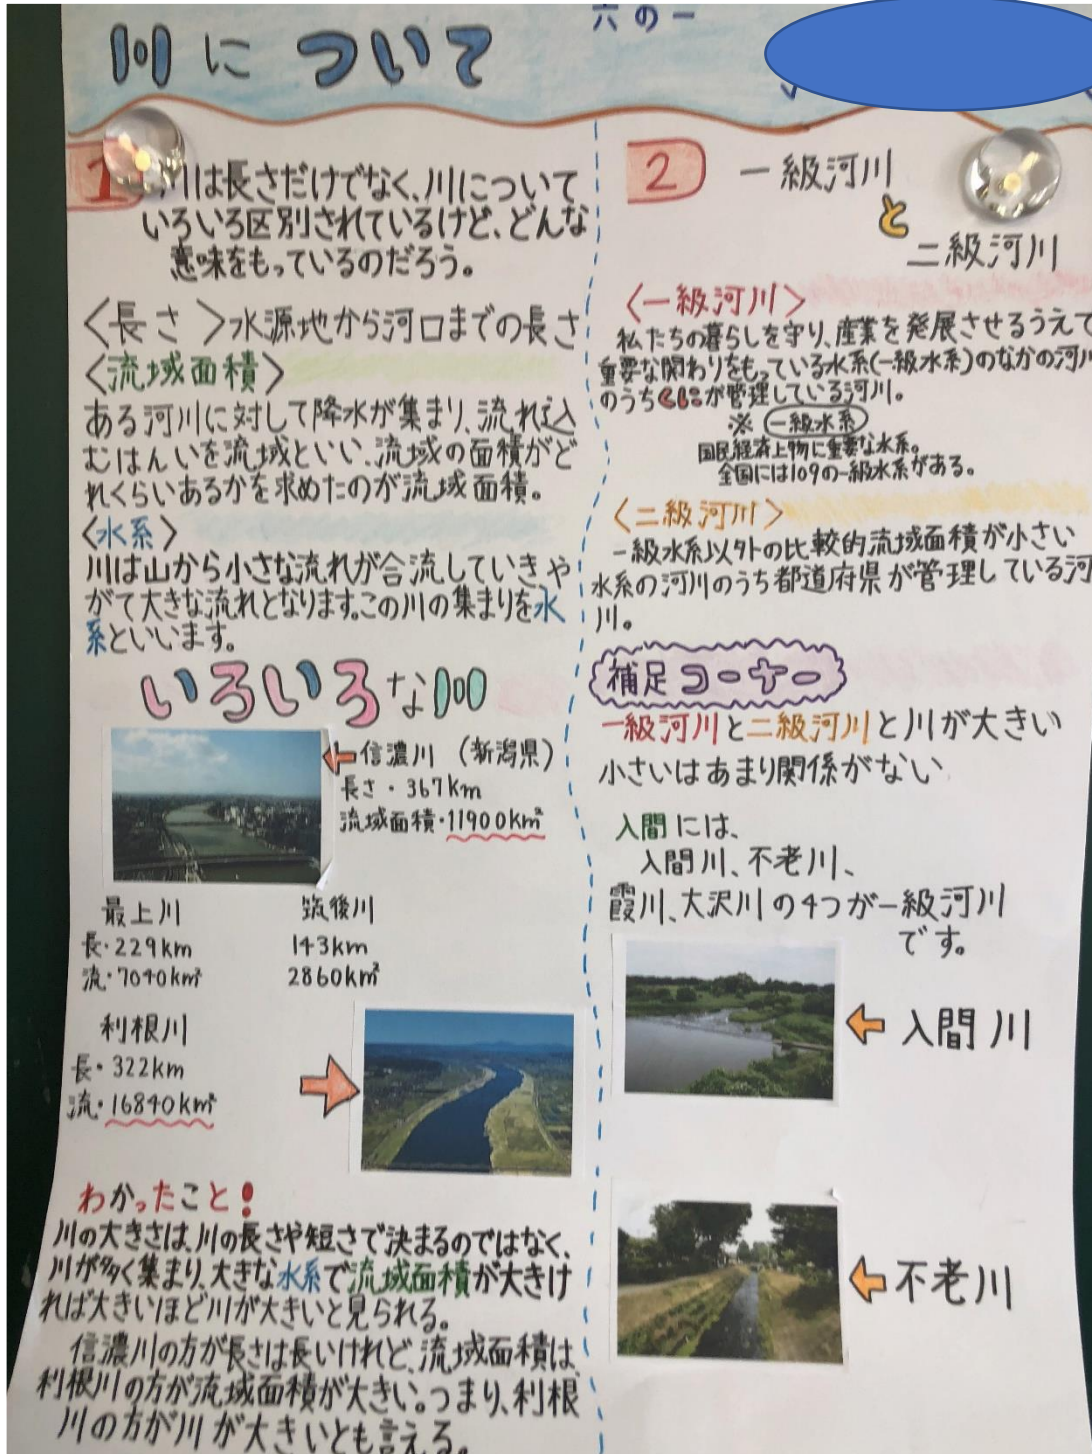 川について
六の一
1
川は長さだけでなく、川について
いろいろ区別されているけど、どんな
意味をもっているのだろう。
〈長さ〉水源地から河口までの長さ
〈流域面積〉
ある河川に対して降水が集まり、流れ込
むはんいを流域といい、流域の面積がど
れくらいあるかを求めたのが流域面積。
〈水系〉
川は山から小さな流れが合流していきや
がて大きな流れとなります。この川の集まりを水
系といいます。
いろいろな川
信濃川（新潟県）
長さ・367km
流域面積・11900km²
最上川 筑後川
長・229km 143km
流・7040km² 2860km²
利根川
長・322km
流・16840km²
わかったこと！
川の大きさは、川の長さや短さで決まるのではなく、
川が多く集まり、大きな水系で流域面積が大きけ
れば大きいほど川が大きいと見られる。
信濃川の方が長さは長いけれど、流域面積は、
利根川の方が流域面積が大きい。つまり、利根
川の方が川が大きいとも言える。
2
一級河川
と
二級河川
〈一級河川〉
私たちの暮らしを守り、産業を発展させるうえで
重要な関わりをもっている水系(一級水系)のなかの河川
のうちくにが管理している河川。
※一級水系
国民経済上物に重要な水系。
全国には109の一級水系がある。
〈二級河川〉
一級水系以外の比較的流域面積が小さい
水系の河川のうち都道府県が管理している河
川。
補足コーナー
一級河川と二級河川と川が大きい
小さいはあまり関係がない
入間には、
入間川、不老川、
霞川、大沢川の4つが一級河川
です。
入間川
不老川